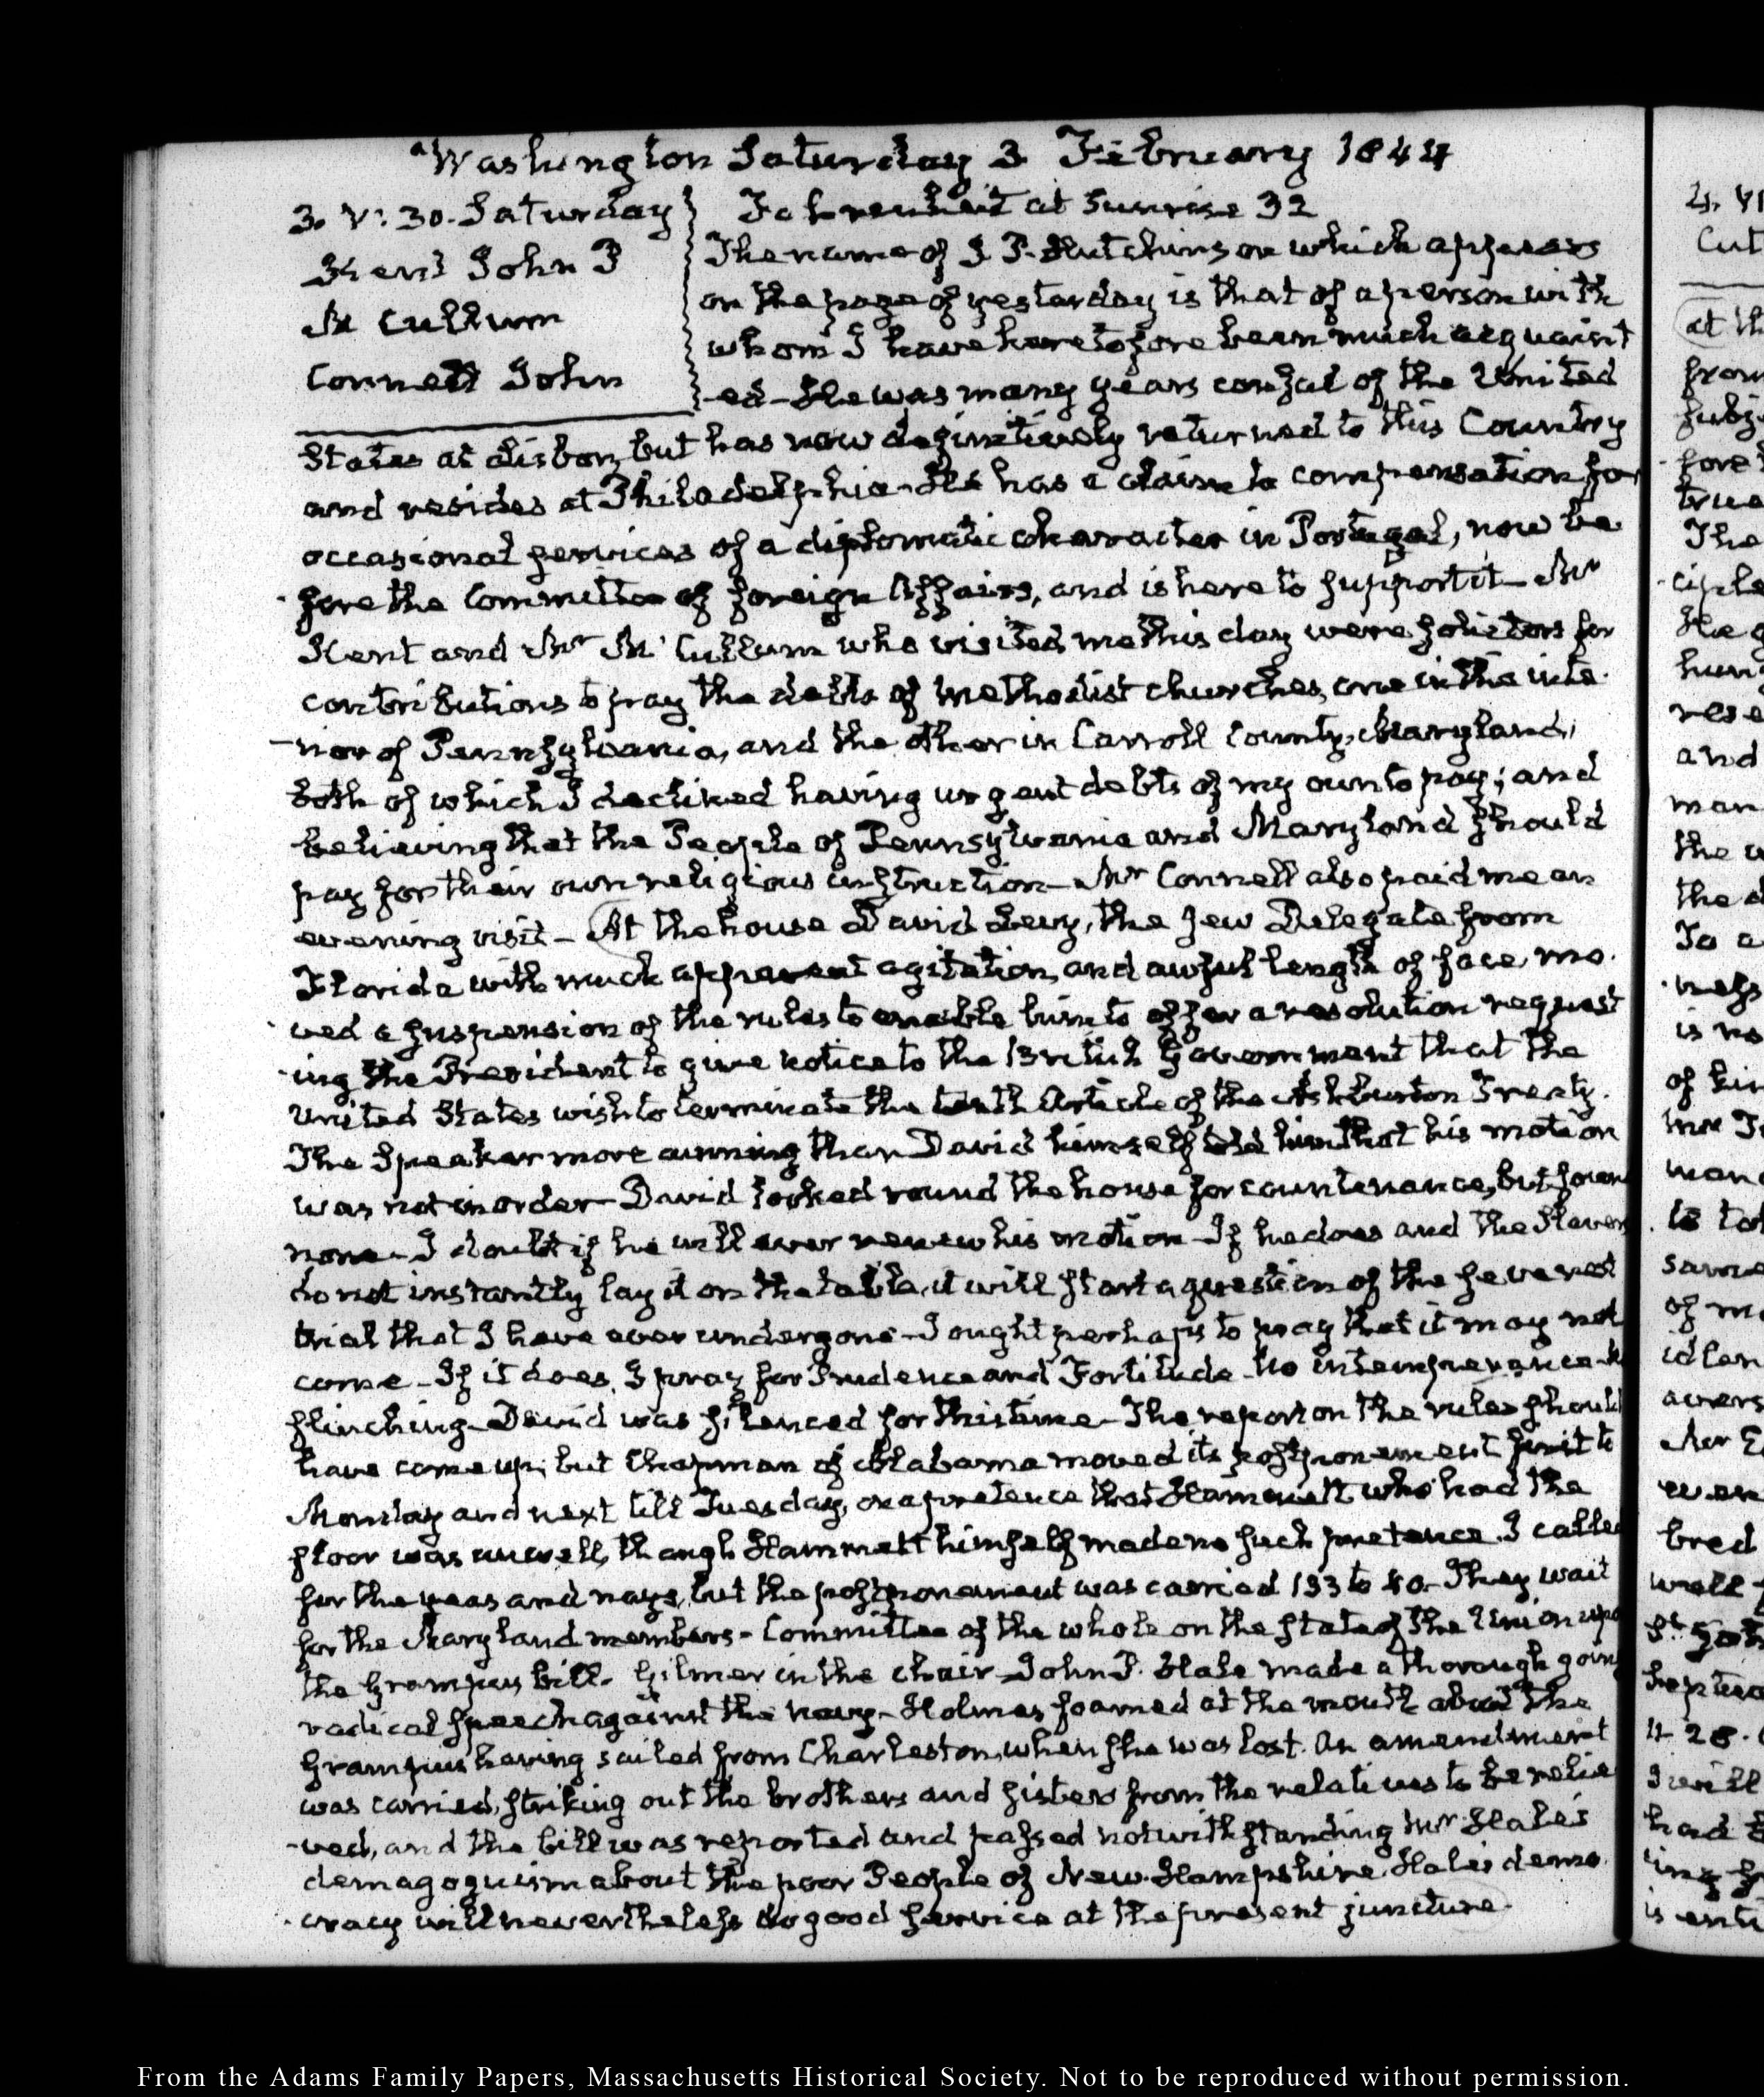 Washington Saturday 3 February 1844
3. V:30. Saturday
Kent John P
Mc Cullum
Connell John
Fahrenheit at Sunrise 32
The name of I P. Hutchinson which appears
on the page of yesterday is that of a person with
whom I have heretofore been much acquaint
-ed – He was many years consul of the United
States at Lisbon, but has now definitively returned to this Country
and resides at Philadelphia – He has a claim to compensation for
occasional services of a diplomatic character in Portugal, now be
-fore the Committee of foreign Affairs, and is here to support it – Mr
Kent and Mr Mc Cullum who visited me this day were solicitors for
contributions to pay the debts of Methodist churches, one in the inte-
-rior of Pennsylvania, and the other in Carroll County, Maryland,
both of which I declined having urgent debts of my own to pay; and
believing that the People of Pennsylvania and Maryland should
pay for their own religious instruction – Mr Connell also paid me an
evening visit – At the house David Levy, the Jew Delegate from
Florida with much apparent agitation, and awful length of face, mo-
-ved a suspension of the rules to enable him to offer a resolution request
-ing the President to give notice to the British Government that the
United States wish to terminate the tenth Article of the Ashburton Treaty.
The Speaker more cunning than David himself told him that his motion
was not in order – David looked round the house for countenance, but found
none – I doubt if he will ever renew his motion – If he does and the Slavers
do not instantly lay it on the table, it will start a question of the severest
trial that I have ever undergone – I ought perhaps to pray that it may not
come – If it does, I pray for Prudence and Fortitude – No intemperance –
flinching – David was silenced for this time – The report on the rules should
have come up; but Chapman of Alabama moved its postponement first to
Monday and next till Tuesday, on a pretence that Hammett who had the
floor was unwell, though Hammett himself made no such pretence. I called
for the yeas and nays, but the postponement was carried 133 to 40 – They wait
for the Maryland members – Committee of the whole on the state of the Union upon
the Grampus bill. Gilmer in the chair – John P. Hale made a thorough going
radical speech against the navy – Holmes foamed at the mouth about the
Grampus having sailed from Charleston, when she was lost. An amendment
was carried, striking out the brothers and sisters from the relatives to be relie
-ved, and the bill was reported and passed notwithstanding Mr Hale's
demagoguism about the poor People of New-Hampshire. Hale's demo-
-cracy will nevertheless do good service at the present juncture.
From the Adams Family Papers, Massachusetts Historical Society. Not to be reproduced without permission.